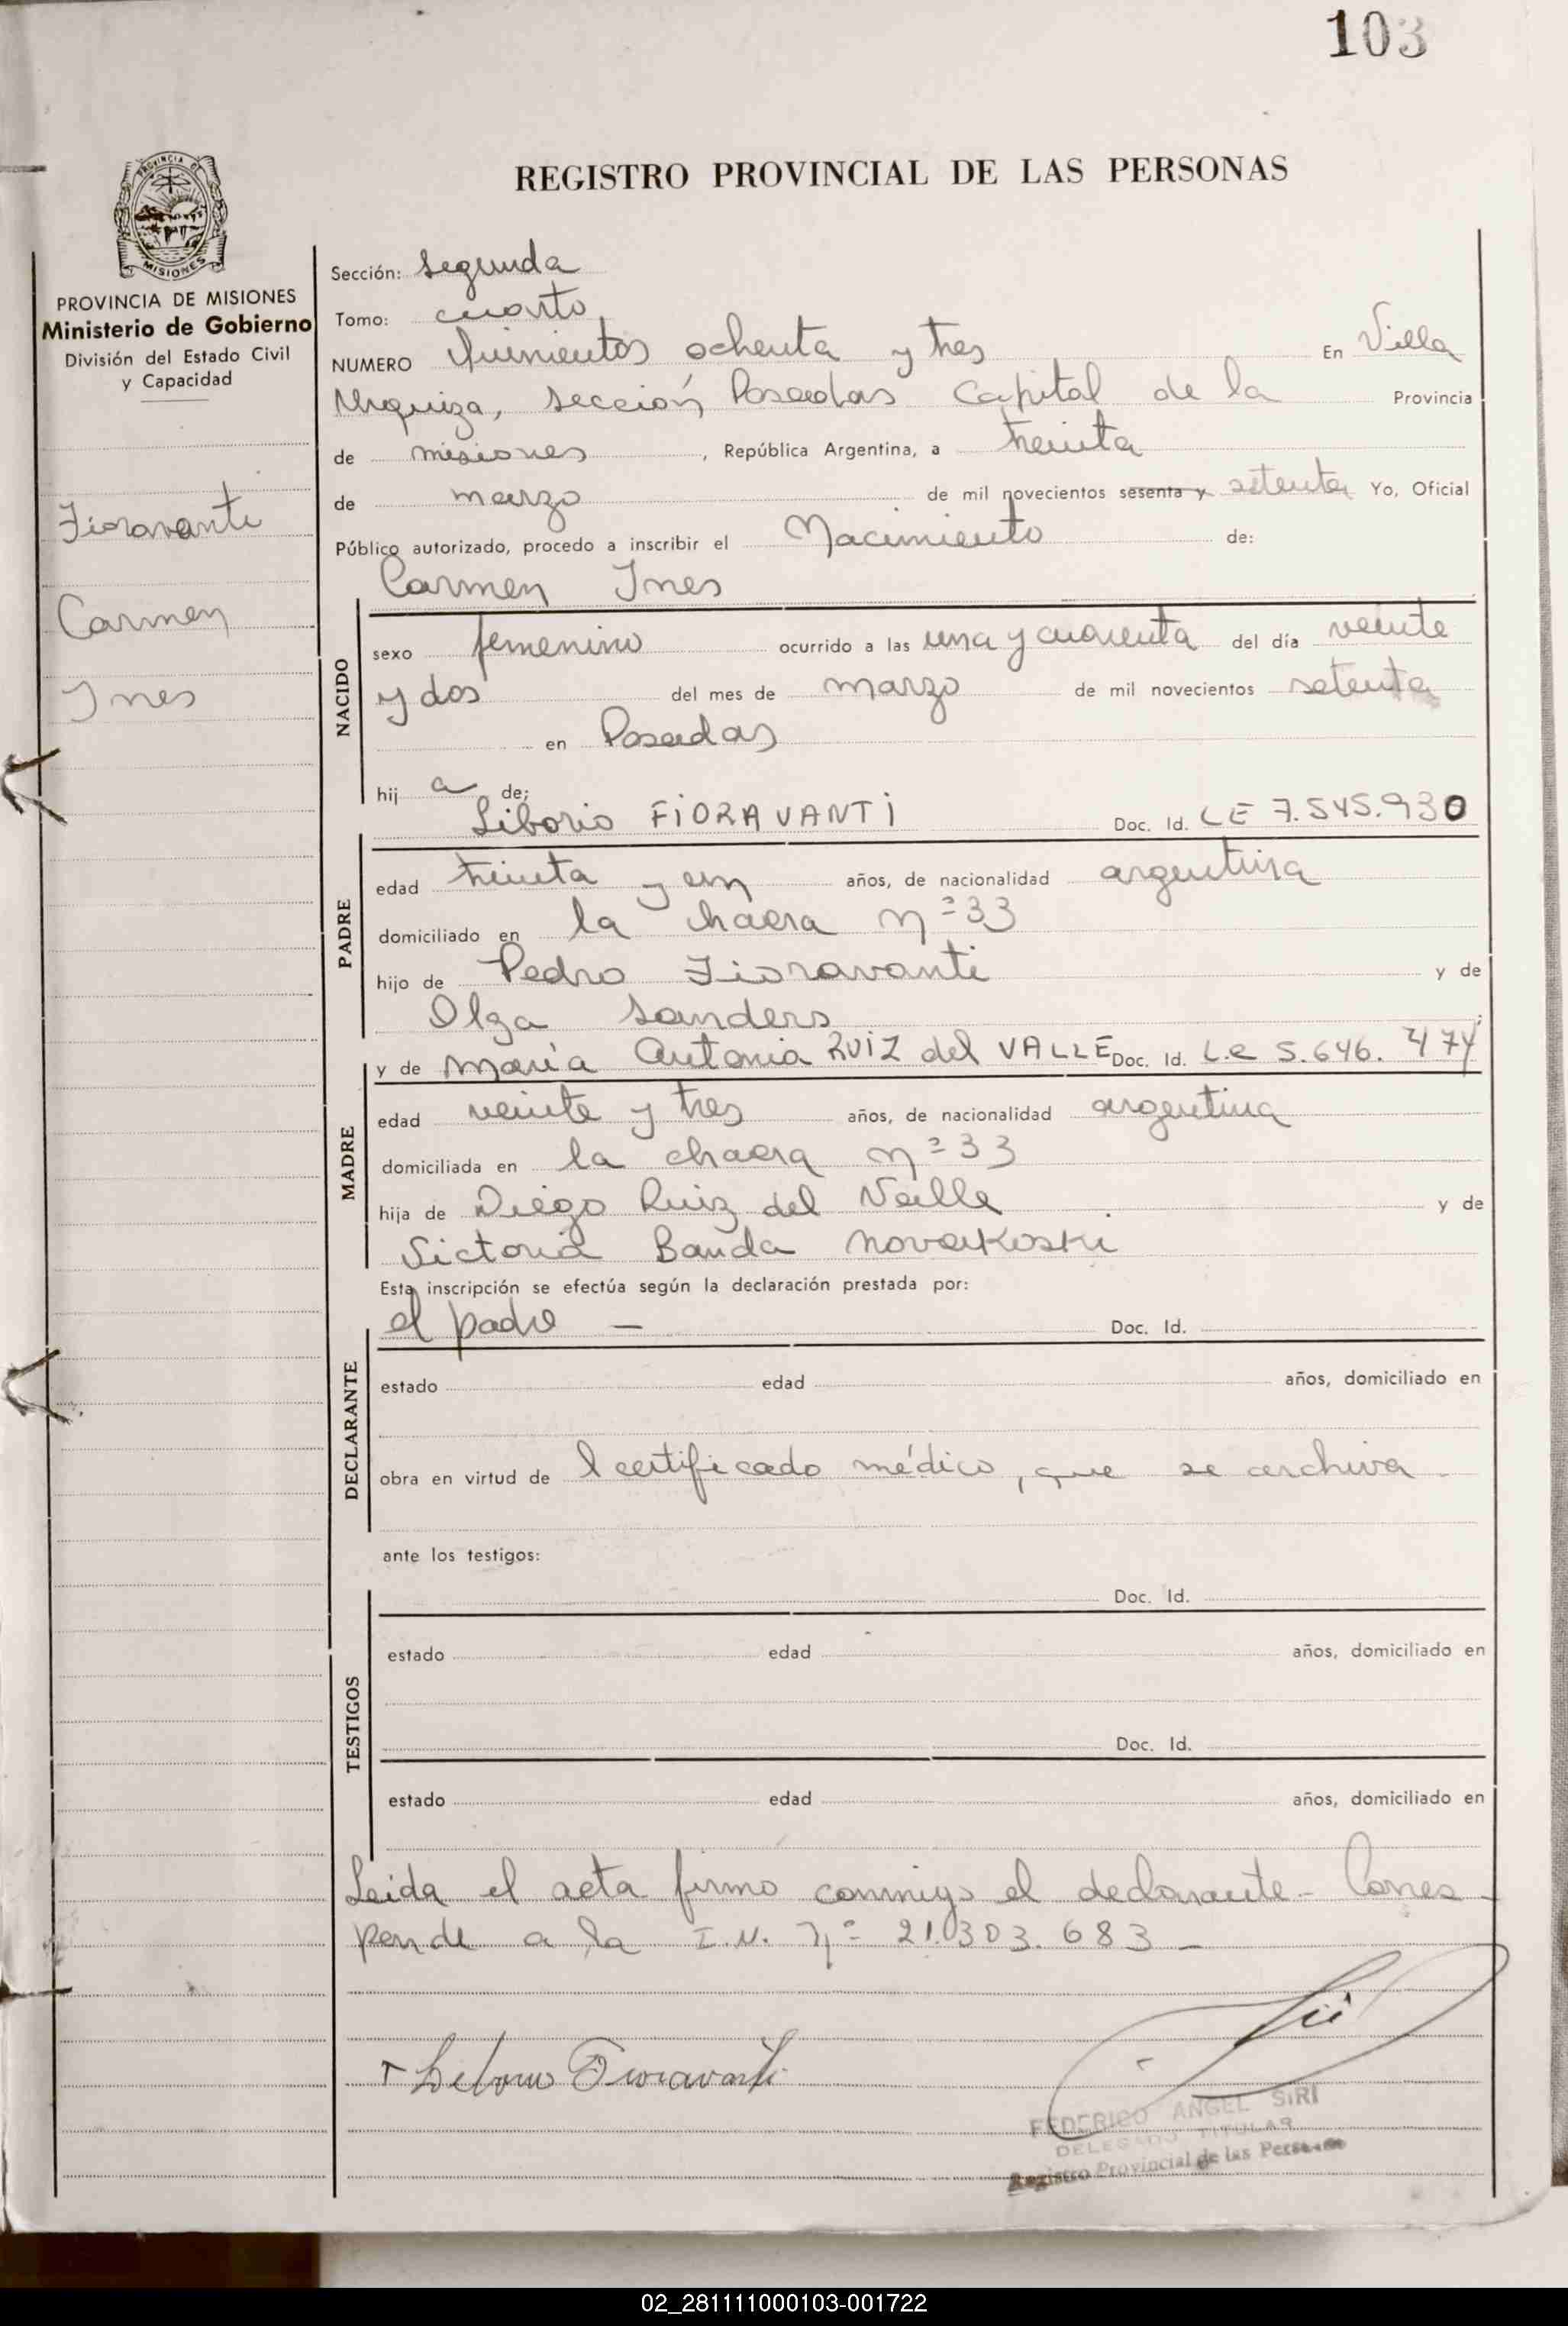 103
REGISTRO PROVINCIAL DE LAS PERSONAS
PROVINCIA DE
MISIONES
PROVINCIA DE MISIONES
Ministerio de Gobierno
División del Estado Civil
y Capacidad
Fioravanti
Carmen
Ines
Sección: segunda
Tomo: cuarto
NUMERO Quinientos ochenta y tres En Villa
Urquiza, sección Posadas Capital de la Provincia
de misiones, República Argentina, a treinta
de marzo de mil novecientos sesenta y setenta Yo, Oficial
Público autorizado, procedo a inscribir el Nacimiento de:
Carmen Ines
NACIDO
sexo femenino ocurrido a las una y cuarenta del día veinte
y dos del mes de marzo de mil novecientos setenta
en Posadas
hij a de;
Liborio FIORAVANTI Doc. Id. LE 7.545.930
PADRE
edad treinta y un años, de nacionalidad argentina
domiciliado en la chacra nº 33
hijo de Pedro Fioravanti y de
Olga Sanders
y de María Antonia RUIZ del VALLE Doc. Id. L.C 5.646.474
MADRE
edad veinte y tres años, de nacionalidad argentina
domiciliada en la chacra nº 33
hija de Diego Ruiz del Valle y de
Victoria Banda Novakoski
Esta inscripción se efectúa según la declaración prestada por:
el padre — Doc. Id.
DECLARANTE
estado edad años, domiciliado en
obra en virtud de l certificado médico, que se archiva -
ante los testigos:
Doc. Id.
TESTIGOS
estado edad años, domiciliado en
Doc. Id.
estado edad años, domiciliado en
Leida el acta firmo conmigo el declarante - Corres-
ponde a la I.N. nº 21.303.683 -
Liborio Fioravanti
FEDERICO ANGEL SIRI
DELEGADO TITULAR
Registro Provincial de las Personas
02_281111000103-001722